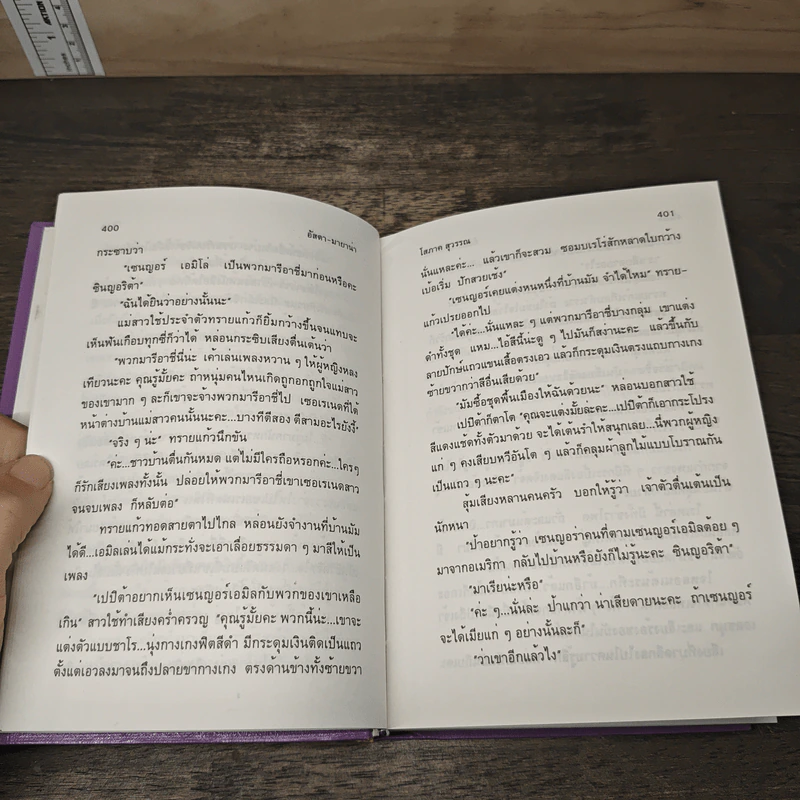 ACTION
inches
1
2
3
400
อัสดา-มายาน่า
กระซาบว่า
"เซนญอร์ เอมิโล่ เป็นพวกมารีอาชี่มาก่อนหรือคะ
ซินญอริต้า"
"ฉันได้ยินว่าอย่างนั้นนะ"
แม่สาวใช้ประจำตัวทรายแก้วก็ยิ้มกว้างขึ้นจนแทบจะ
เห็นฟันเกือบทุกซี่ก็ว่าได้ หล่อนกระซิบเสียงตื่นเต้นว่า
"พวกมารีอาชี่นี่น่ะ เค้าเล่นเพลงหวาน ๆ ให้ผู้หญิงหลง
เทียวนะคะ คุณรู้มั้ยคะ ถ้าหนุ่มคนไหนเกิดถูกอกถูกใจแม่สาว
ของเขามาก ๆ ละก็เขาจะจ้างพวกมารีอาชี่ไป เซอเรเนดที่ใต้
หน้าต่างบ้านแม่สาวคนนั้นนะคะ...บางทีตีสอง ตีสามอะไรยังงี้"
"จริง ๆ น่ะ" ทรายแก้วนึกขัน
"ค่ะ...ชาวบ้านตื่นกันหมด แต่ไม่มีใครถือหรอกค่ะ...ใครๆ
ก็รักเสียงเพลงทั้งนั้น ปล่อยให้พวกมารีอาชี่เขาเซอเรเนดสาว
จนจบเพลง ก็หลับต่อ"
ทรายแก้วทอดสายตาไปไกล หล่อนยังจำงานที่บ้านมัม
ได้ดี...เอมิลเล่นได้แม้กระทั่งจะเอาเลื่อยธรรมดา ๆ มาสีให้เป็น
เพลง
"เปปีต้าอยากเห็นเซนญอร์เอมิลกับพวกของเขาเหลือ
เกิน" สาวใช้ทำเสียงคร่ำครวญ "คุณรู้มั้ยคะ พวกนี้น่ะ...เขาจะ
แต่งตัวแบบชาโร...นุ่งกางเกงฟิตสีดำ มีกระดุมเงินติดเป็นแถว
ตั้งแต่เอวลงมาจนถึงปลายขากางเกง ตรงด้านข้างทั้งซ้ายขวา
โสภาค สุวรรณ
401
นั่นแหละค่ะ... แล้วเขาก็จะสวม ซอมบเรโร่สักหลาดใบกว้าง
เบ้อเริ่ม ปักสวยเช้ง"
"เซนญอร์เคยแต่งหนหนึ่งที่บ้านมัม จำได้ไหม" ทราย-
แก้วเปรยออกไป
"ได้ค่ะ...นั่นแหละ ๆ แต่พวกมารีอาชี่บางกลุ่ม เขาแต่ง
ดำทั้งชุด แหม...ไอสีนี่น่ะดู ๆ ไปมันก็สง่านะคะ แล้วขึ้นกับ
ลายปักษ์แถวแขนเสื้อตรงเอว แล้วก็กระดุมเงินตรงแถบกางเกง
ซ้ายขวากว่าสีอื่นเสียด้วย"
"มัมซื้อชุดพื้นเมืองให้ฉันด้วยนะ" หล่อนบอกสาวใช้
เปปีต้าก็ตาโต "คุณจะแต่งมั้ยละคะ...เปปีต้าก็เอากระโปรง
สีแดงแช้ดทั้งตัวมาด้วย จะได้เต้นรำให้สนุกเลย...นี่พวกผู้หญิง
แก่ ๆ คงเสียบหวีอันโต ๆ แล้วก็คลุมผ้าลูกไม้แบบโบราณกัน
เป็นแถว ๆ นะคะ"
สุ้มเสียงหลานคนครัว บอกให้รู้ว่า เจ้าตัวตื่นเต้นเป็น
นักหนา
"ป้าอยากรู้ว่า เซนญอราคนที่ตามเซนญอร์เอมิลต้อย ๆ
มาจากอเมริกา กลับไปบ้านหรือยังก็ไม่รู้นะคะ ซินญอริต้า"
"มาเรียน่ะหรือ"
"ค่ะ ๆ...นั่นล่ะ ป้าแกว่า น่าเสียดายนะคะ ถ้าเซนญอร์
จะได้เมียแก่ ๆ อย่างนั้นละก็"
"ว่าเขาอีกแล้วไง"